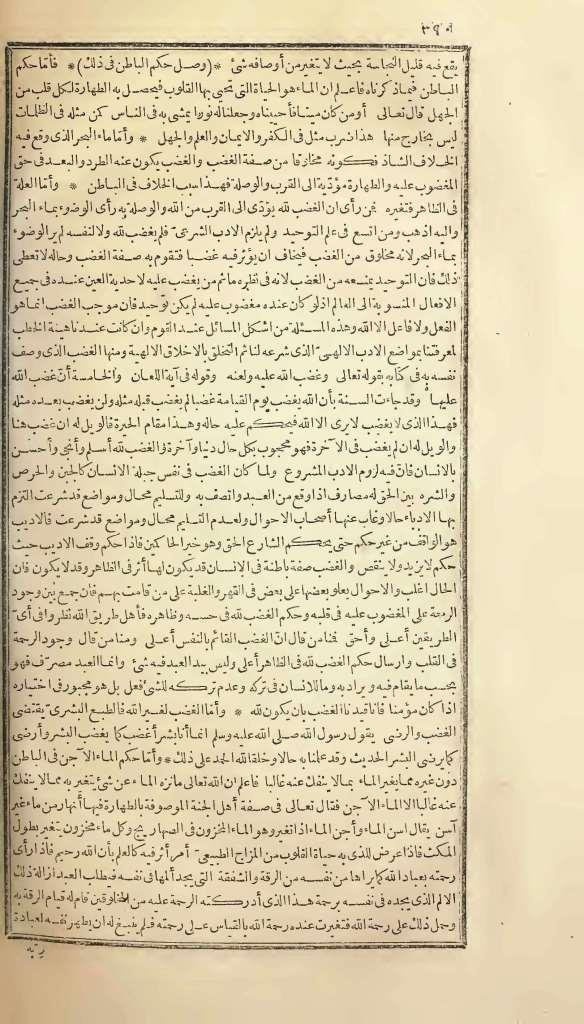 يقع فيه قليل النجاسة بحيث لا يتغير من أوصافه شئ * (وصل حكم الباطن فى ذلك) * فأما حكم
الباطن فيما ذكرناه فاعلم ان الماء هو الحياة التى تحيى بها القلوب فيحصل به الطهارة لكل قلب من
الجهل قال تعالى أومن كان ميتا فأحييناه وجعلنا له نورا يمشى به فى الناس كمن مثله فى الظلمات
ليس بخارج منها هذا ضرب مثل فى الكفر والايمان والعلم والجهل * وأما ماء البحر الذى وقع فيه
الخلاف الشاذ فكونه مخلوقا من صفة الغضب والغضب يكون عنه الطرد والبعد فى حق
المغضوب عليه والطهارة مؤدّية الى القرب والوصلة فهذا سبب الخلاف فى الباطن * وأما العلة
فى الظاهر فتغيره فمن رأى ان الغضب لله يؤدّى الى القرب من الله والوصلة به رأى الوضوء بماء البحر
واليه اذهب ومن اتسع فى علم التوحيد ولم يلزم الادب الشرعىّ فلم يغضب لله ولا لنفسه لم ير الوضوء
بماء البحر لانه مخلوق من الغضب فيخاف ان يؤثر فيه غضبا فتقوم به صفة الغضب وحاله لا تعطى
ذلك فان التوحيد يمنعه من الغضب لانه فى نظره ما ثم من يغضب عليه لاحدية العين عنده فى جميع
الافعال المنسوبة الى العالم اذ لو كان عنده مغضوب عليه لم يكن توحيد فان موجب الغضب انما هو
الفعل ولا فاعل الا الله وهذه المسئلة من اشكل المسائل عند القوم وان كانت عندنا هينة الخطب
لمعرفتنا بمواضع الادب الالهىّ الذى شرعه لنا ثم التخلق بالاخلاق الالهية ومنها الغضب الذى وصف
نفسه به فى كتابه بقوله تعالى وغضب الله عليه ولعنه وقوله فى آية اللعان والخامسة أنّ غضب الله
عليها وقد جاءت السنة بأن الله يغضب يوم القيامة غضبا لم يغضب قبله مثله ولن يغضب بعده مثله
فهذا الذى لا يغضب لا يرى الا الله فيحكم عليه حاله وهذا مقام الحيرة فالويل له ان غضب هنا
والويل له ان لم يغضب فى الآخرة فهو محجوب بكل حال دنيا وآخرة والغضب لله أسلم وأنجى وأحسن
بالانسان فانّ فيه لزوم الادب المشروع ولما كان الغضب فى نفس جبلة الانسان كالجبن والحرص
والشره بين الحق له مصارف اذا وقع من العبد واتصف به وللتسليم محال ومواضع قد شرعت التزم
بها الادباء حالا وغاب عنها أصحاب الاحوال ولعدم التسليم محال ومواضع قد شرعت فالاديب
هو الواقف من غير حكم حتى يحكم الشارع الحق وهو خير الحاكمين فاذا حكم وقف الاديب حيث
حكم لا يزيد ولا ينقص والغضب صفة باطنة فى الانسان قد يكون لها أثر فى الظاهر وقد لا يكون فان
الحال اغلب والاحوال يعلو بعضها على بعض فى القهر والغلبة على من قامت بهم فان جمع بين وجود
الرحمة على المغضوب عليه فى قلبه وحكم الغضب لله فى حسه وظاهره فأهل طريق الله نظروا فى أىّ
الطريقين أعلى وأحق فمنا من قال انّ الغضب القائم بالنفس أعلى ومنا من قال وجود الرحمة
فى القلب وارسال حكم الغضب لله فى الظاهر أعلى وليس بيد العبد فيه شئ وانما العبد مصرّف فهو
بحسب ما يقام فيه ويراد به وما للانسان فى تركه وعدم تركه للشئ فعل بل هو مجبور فى اختياره
اذا كان مؤمنا فانا قيدنا الغضب بأن يكون لله * وأمّا الغضب لغير الله فالطبع البشرىّ يقتضى
الغضب والرضى يقول رسول الله صلى الله عليه وسلم انما أنا بشر أغضب كما يغضب البشر وأرضى
كما يرضى البشر الحديث وقد علمنا به حالا وخلقا لله الحمد على ذلك * وأمّا حكم الماء الآجن فى الباطن
دون غيره مما يغير الماء بما لا ينفك عنه غالبا فاعلم ان الله تعالى ما نزه الماء عن شئ يتغير به مما لا ينفك
عنه غالبا الا الماء الآجن فقال تعالى فى صفة أهل الجنة الموصوفة بالطهارة فيها أنهار من ماء غير
آسن يقال اسن الماء وأجن الماء اذا تغير وهو الماء المخزون فى الصهاريج وكل ماء مخزون يتغير بطول
المكث فاذا عرض للذى به حياة القلوب من المزاج الطبيعىّ أمر أثر فيه كالعلم بأن الله رحيم فاذا رأى
رحمته بعباد الله كما يراها من نفسه من الرقة والشفقة التى يجد ألمها فى نفسه فيطلب العبد ازالة ذلك
الالم الذى يجده فى نفسه برحمة هذا الذى أدركته الرحمة عليه من المخلوقين قام له قيام الرقة به
وحمل ذلك على رحمة الله فتغيرت عنده رحمة الله بالقياس على رحمته فلم ينبغ له ان يطهر نفسه لعبادة
ربه